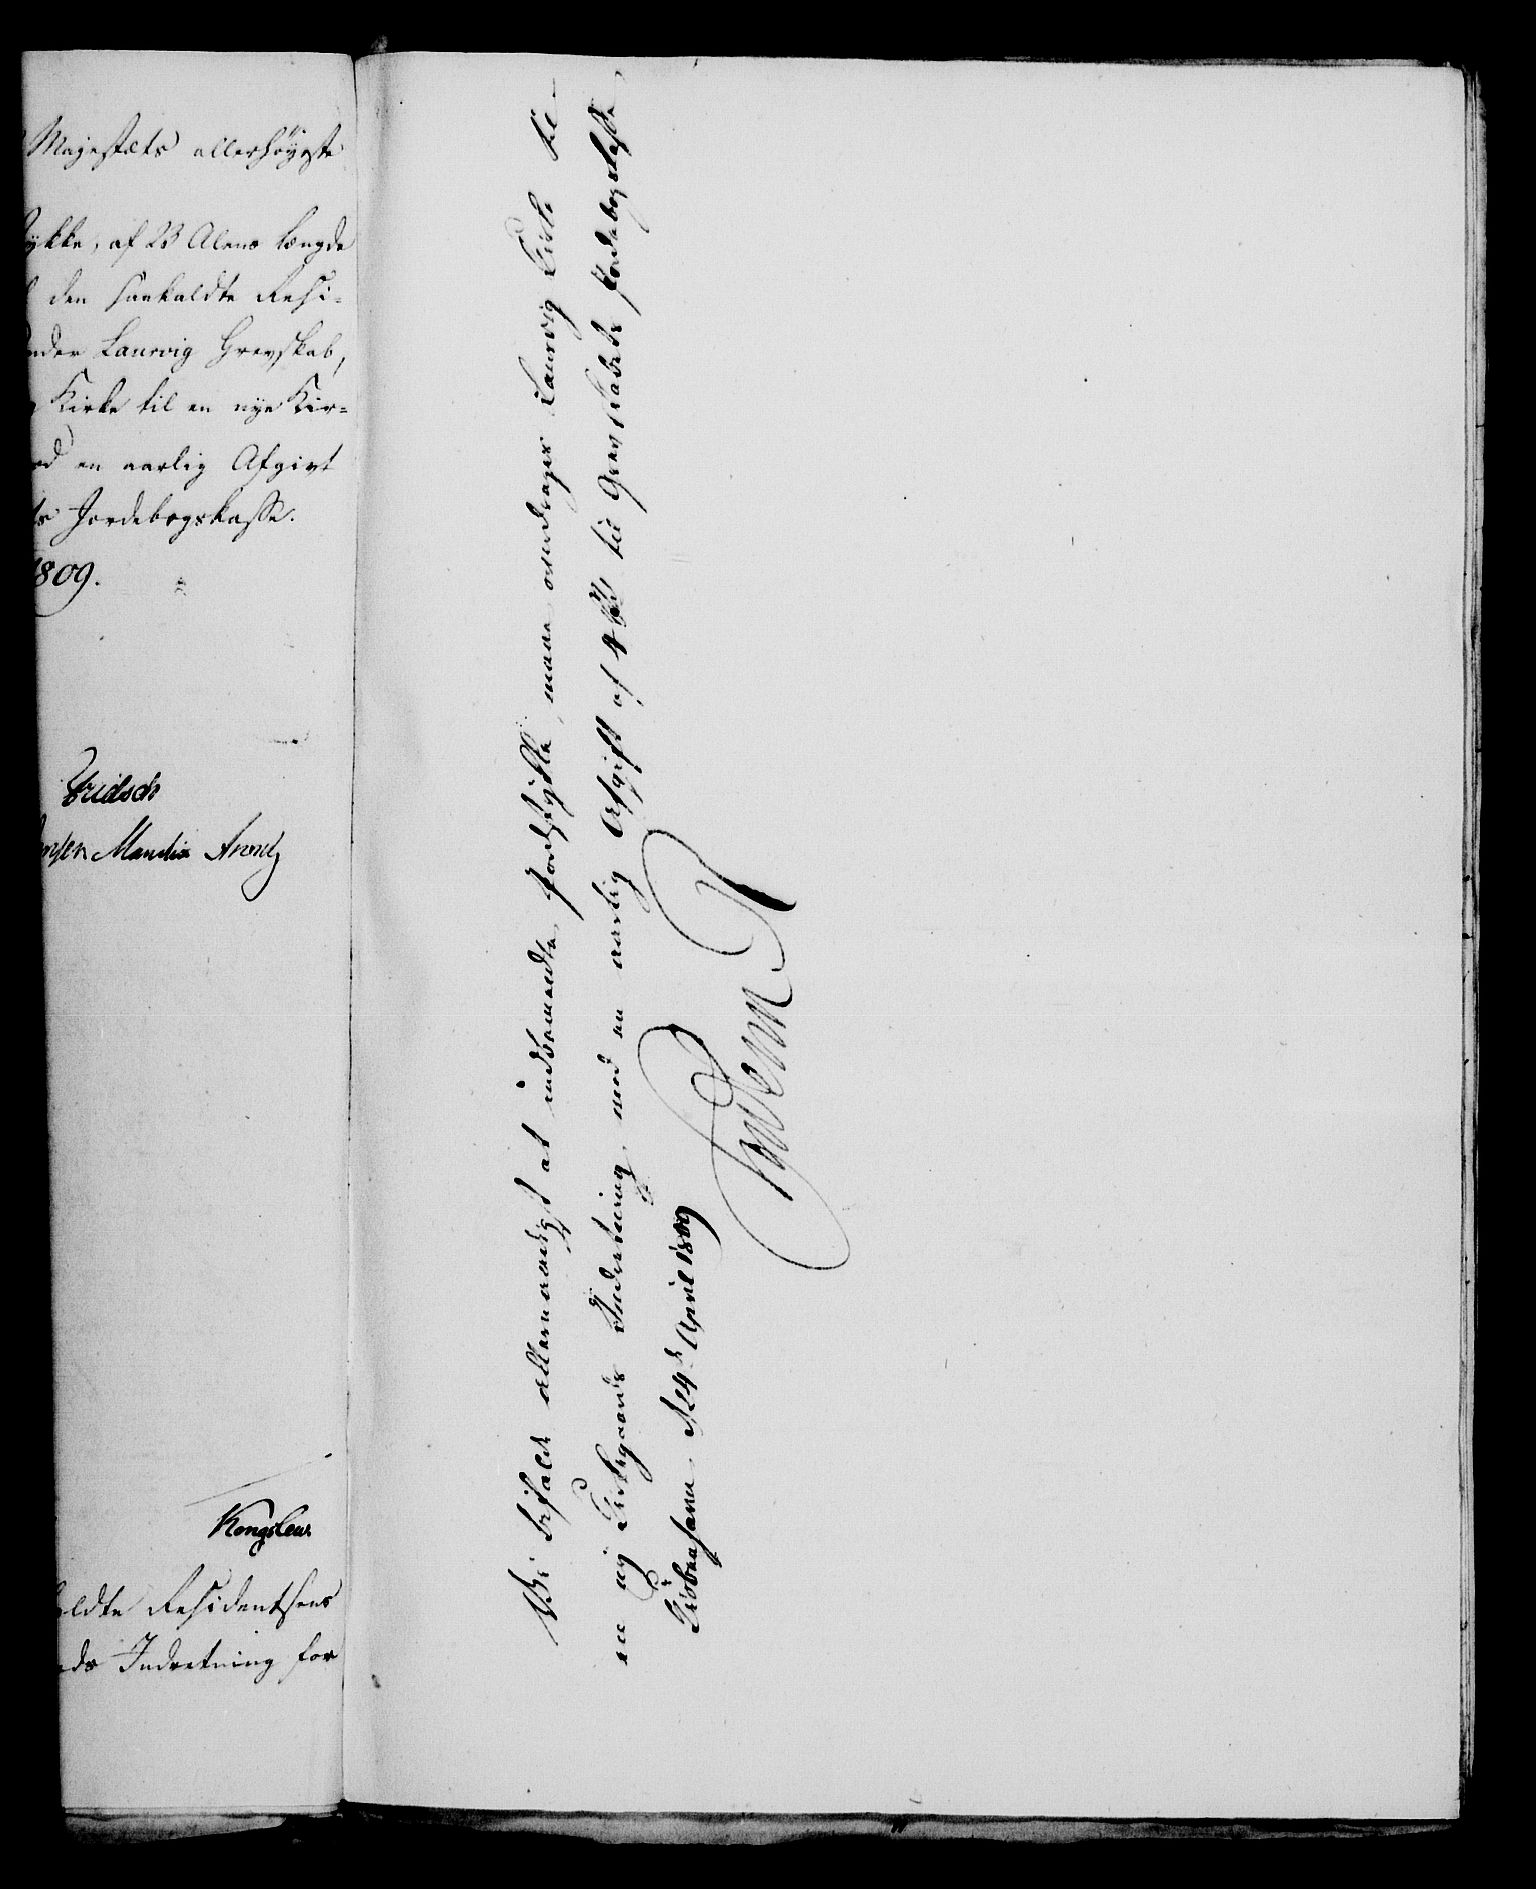 Majestæts allerhøyeste
af 23 Alens Længde
den saakaldte Resi-
under Laurvig Grevskab,
Kirke til en nye Kir-
en aarlig Afgivt
Jordebogskasse.
1809.
Fridsch
Monsen Mandix Arentz
Kongslew
Residentsens
Indretning for
Vi bifalde allernaadigst at indbemeldte Jordstykke, maae overdrages Laurvig Kirke til
en ny Kirkegaards Indretning, mod en aarlig Afgift af 4 rd til Grevskabets Jordebogskasse,
Kiøbenhavn, d 24d April 1809
Frederik R